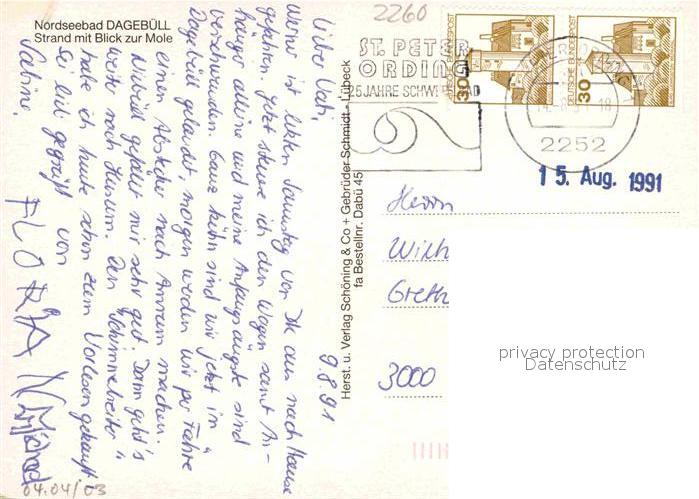 Nordseebad DAGEBÜLL
Strand mit Blick zur Mole
2260
ST. PETER
ORDING
25 JAHRE
2252
DEUTSCHE BUNDESPOST
30
30
15. Aug. 1991
9.8.91
Lieber Vati,
Werner ist letzten Samstag von Dk aus nach Hause
gefahren. Jetzt steuere ich den Wagen samt An-
hänger alleine und meine Anfangsängste sind
verschwunden. Ganz kühn sind wir jetzt in
Dagebüll gelandet, morgen werden wir per Fähre
einen Abstecher nach Amrum machen.
Niebüll gefällt mir sehr gut. Dann geht's
weiter nach Husum. Den "Schimmelreiter"
habe ich heute schon zum Vorlesen gekauft
Sei lieb gegrüßt von
Sabine.
FLORIAN
Michael
04.04/03
Herst. u. Verlag Schöning & Co + Gebrüder Schmidt - Lübeck
fa Bestellnr. Dabü 45
Herrn
Wilh
Greth
3000
privacy protection
Datenschutz